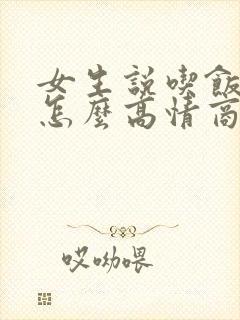 女生説喫飯
怎麼高情商
哎呦喂